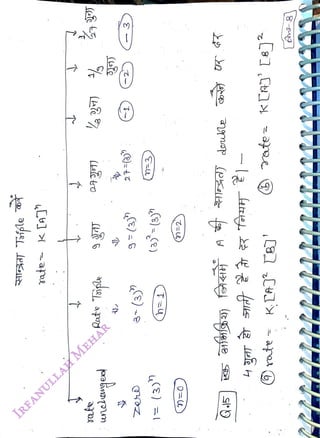 IRFANULLAH MEHAR
सान्द्रता Triple करें
rate = K [A]ⁿ
rate unchanged
⇓
zero
1 = (3)ⁿ
n=0
Rate Triple
⇓
3 = (3)ⁿ
n=1
9 गुना
⇓
9 = (3)ⁿ
(3)² = (3)ⁿ
n=2
27 गुना
⇓
27 = (3)ⁿ
n=3
1/3 गुना
-1
1/9 गुना
-2
1/27 गुना
-3
Q.15 एक अभिक्रिया जिसमें A की सान्द्रता double करने पर दर
4 गुना हो जाती है तो दर नियम है। —
ⓐ rate = K [A]² [B]' ⓑ rate = K [A]' [B]²